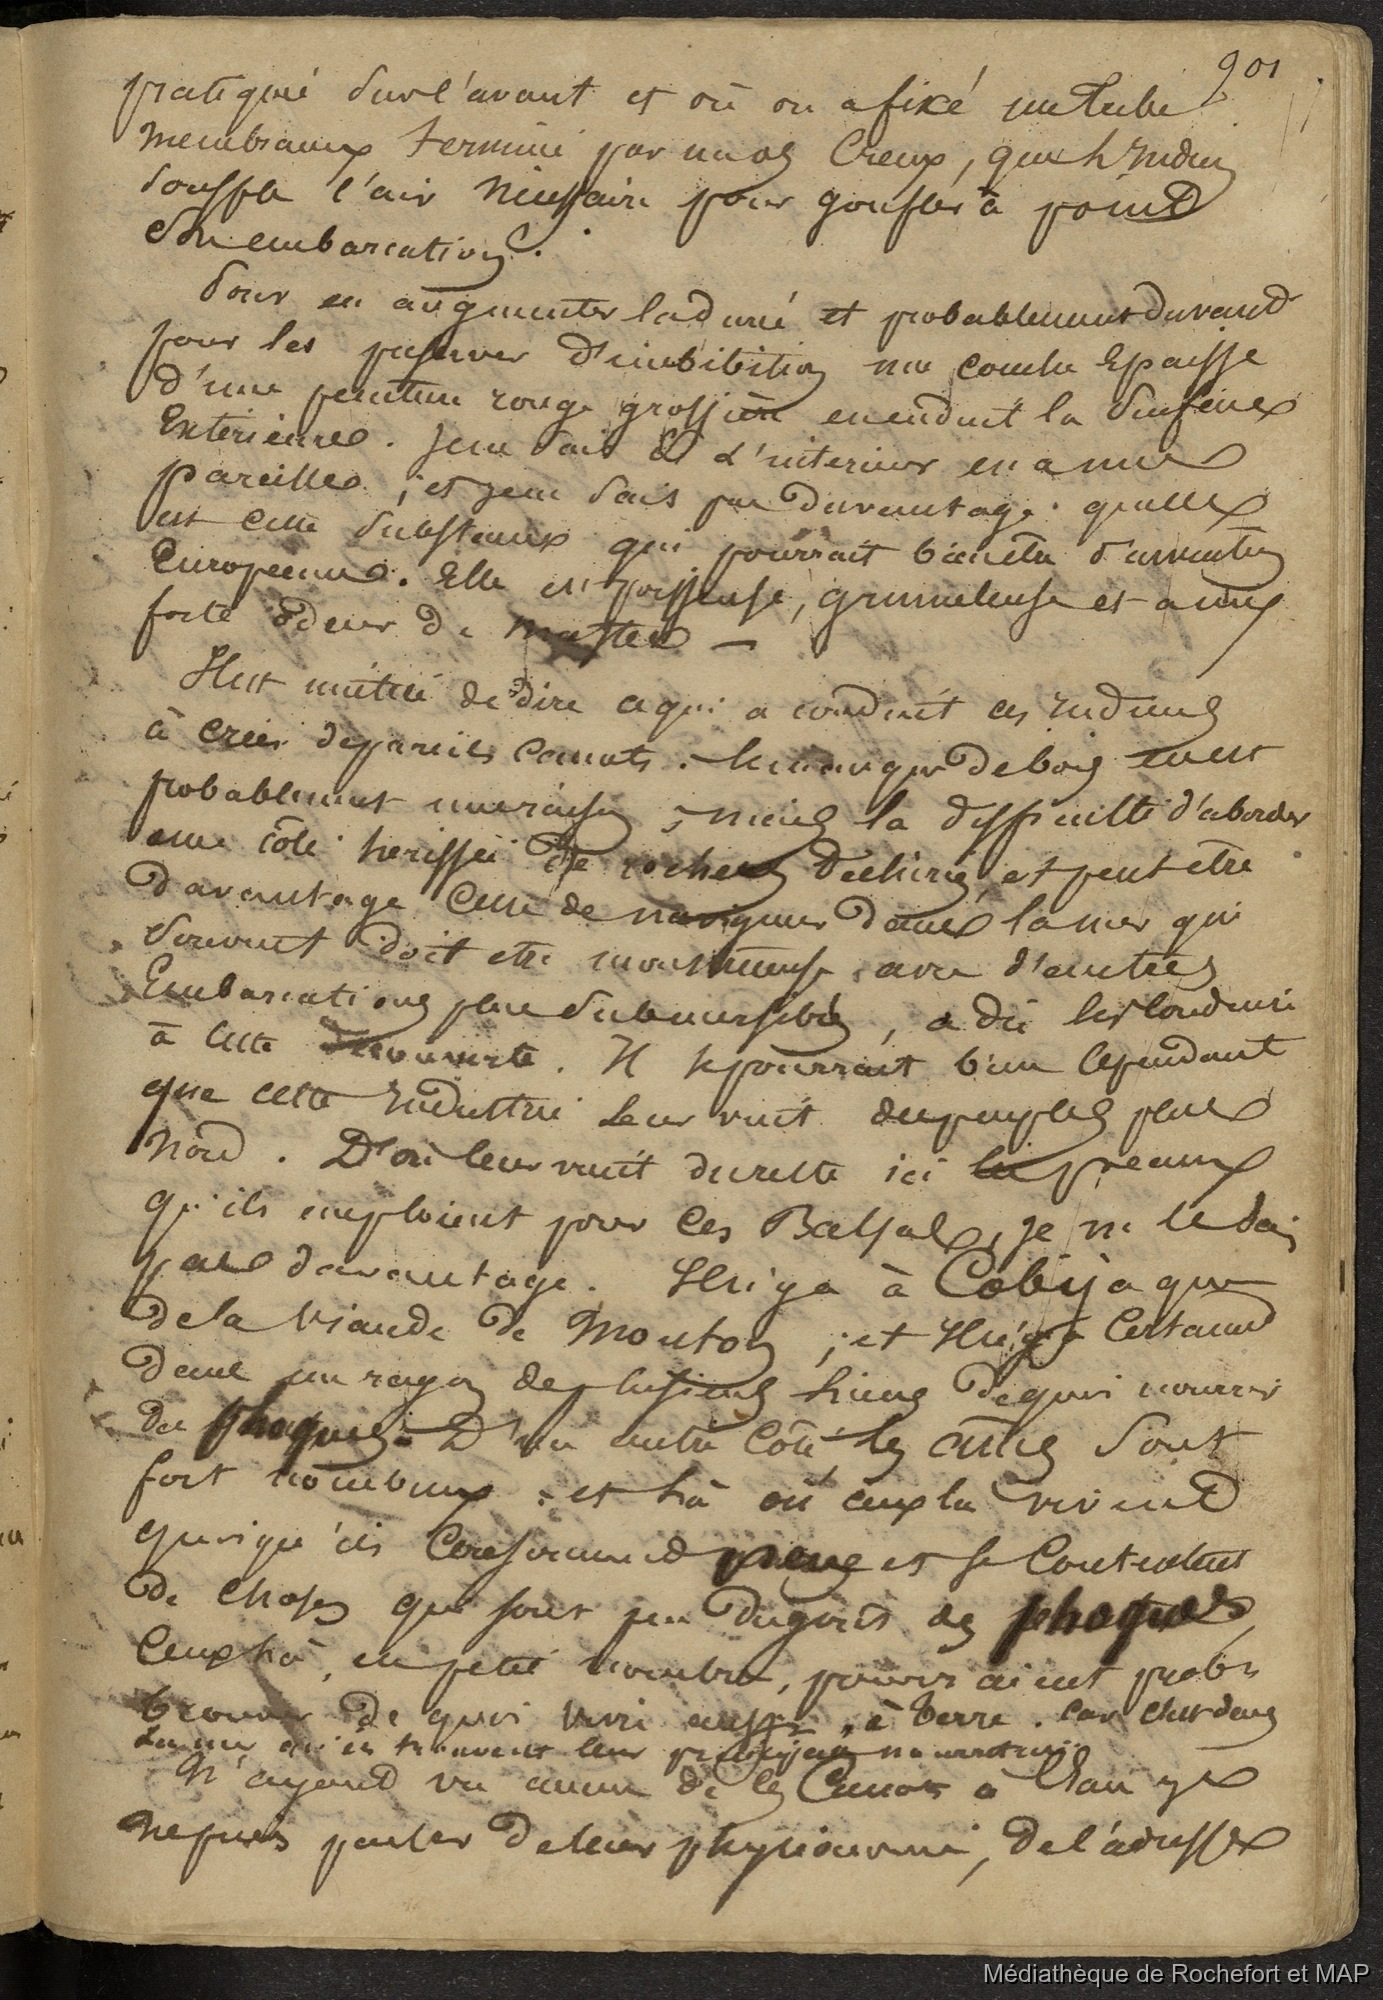 901
pratiqué sur l'avant et où on a fixé un tube
membraneux terminé par un os creux, que l'Indien
souffle l'air nécessaire pour gonfler à point
son embarcation.
Pour en augmenter la durée et probablement davant
pour les préserver d'imbibition une couche épaisse
d'une peinture rouge grossière en enduit la surface
Extérieure. Je ne sais si l'interieur en a une
pareille, et je ne sais pas davantage quelle
est cette substance qui pourrait bien être d'invention
Européenne. Elle est poisseuse, grumeleuse et a une
forte odeur de mastic —
Il est inutile de dire ce qui a conduit ces Indiens
à créer de pareils canots. le manque de bois en est
probablement une raison, mais la difficulté d'aborder
une côte herissée de rochers déchirés, et peut être
davantage celle de naviguer dans la mer qui
souvent doit etre monstrueuse avec d'autres
Embarcations plus submersibles, a dû les conduire
à cette découverte. Il se pourrait bien cependant
que cette Industrie leur vint des peuples plus
nord. D'où leur vient du reste ici les peaux
qu'ils emploient pour ces Balsas, je ne le sais
pas davantage. Il n'y a à Cobija que
de la viande de Mouton, et Il n'y a certainnd
dans un rayon de plusieurs lieues de quoi nourrir
des phoques. D'un autre côté, les ânes sont
fort nombreux, et là où ceux la vivent
quoiqu'ils consomment peu et se contentent
de choses qui sont peu du goût des phoques,
ceux là, en petit nombre, pourraient probt
trouver de quoi vivre aussi, à terre. Car c'est dans
la mer qu'ils trouvent leur principale nourriture
N'ayant vu aucun de ces Canots à l'eau je
ne puis parler de leur physionomie, de l'adresse
Médiathèque de Rochefort et MAP